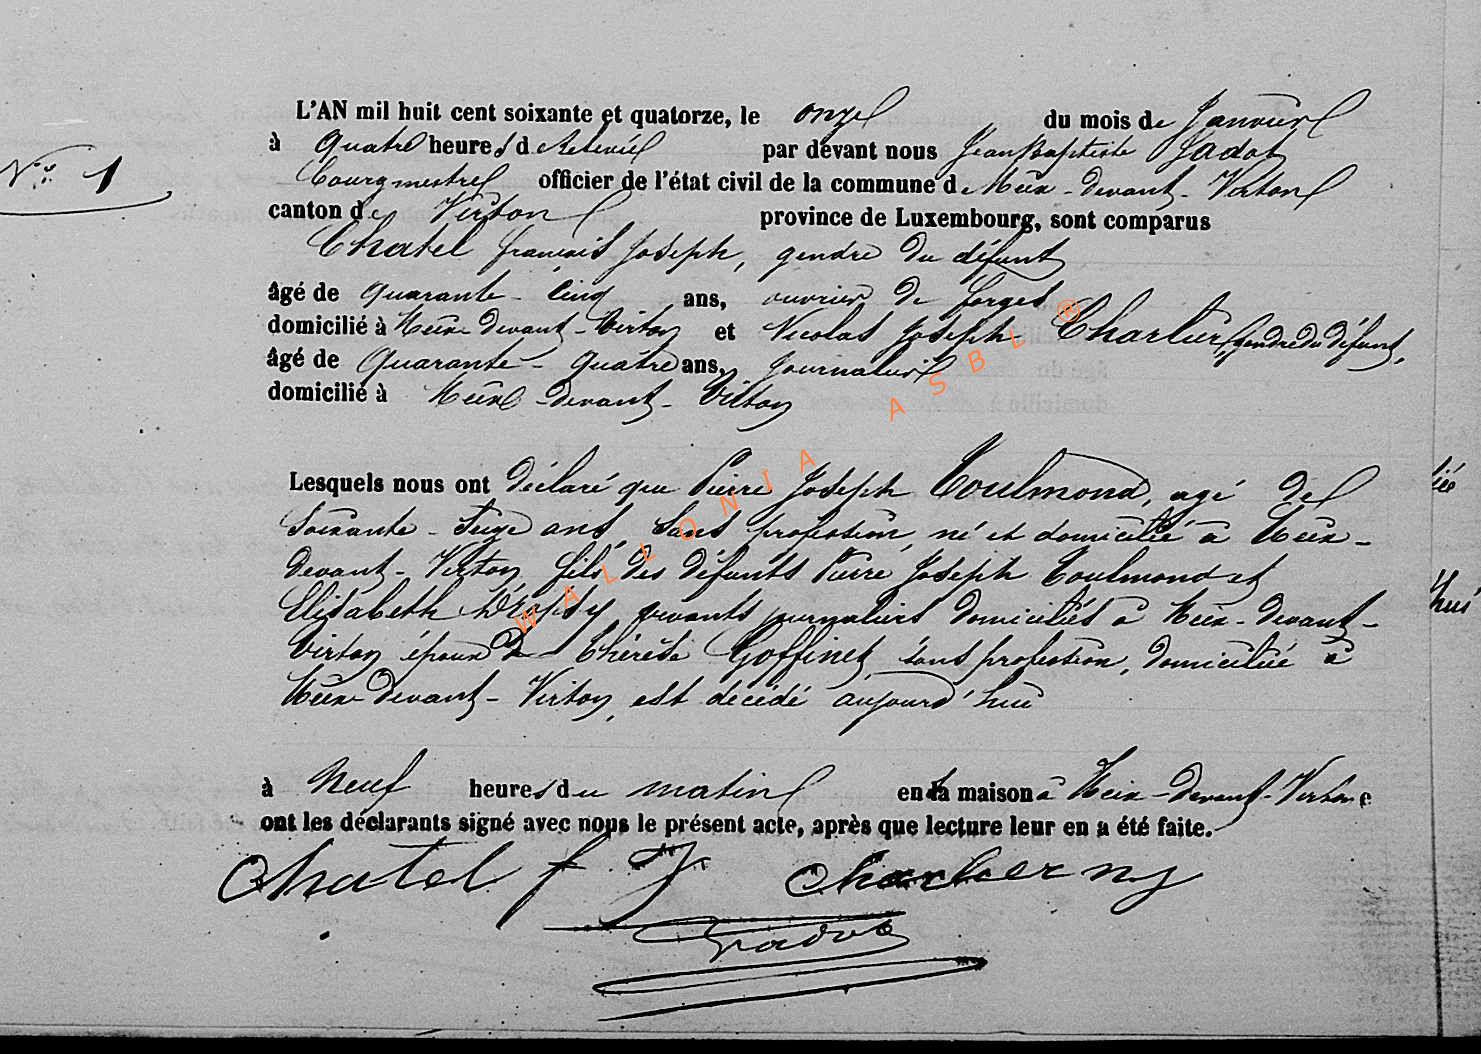 L'AN mil huit cent soixante et quatorze, le onze du mois de Janvier
à quatre heures de relevée par devant nous Jean Baptiste Jadot
N° 1
bourgmestre officier de l'état civil de la commune de Meix-devant-Virton
canton de Virton province de Luxembourg, sont comparus
Chatel françois Joseph, gendre du défunt
âgé de quarante-cinq ans, ouvrier de forges
domicilié à Meix devant-Virton et Nicolas Joseph Charlier, gendre du défunt,
âgé de quarante-quatre ans, journalier
domicilié à Meix-devant-Virton
Lesquels nous ont déclaré que Pierre Joseph Toulmond, agé de
Soixante-Seize ans, sans profession, né et domicilié à Meix-
devant-Virton, fils des défunts Pierre Joseph Toulmond et
Elisabeth vivants journaliers domiciliés à Meix-devant-
Virton époux de Thérèse Goffinet sans profession, domiciliée à
Meix devant-Virton, est décédé aujourd'hui
à Neuf heures du matin en la maison à Meix-Devant-Virton e
ont les déclarants signé avec nous le présent acte, après que lecture leur en a été faite.
Chatel f J Charlier n j
Jadot
WALLONIA ASBL ®